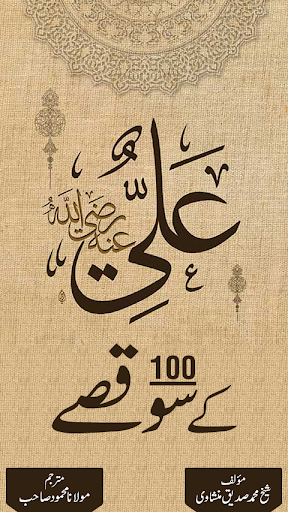 عَلِيّ
رضی اللہ عنہ
100
کے سو قصے
مؤلف
شیخ محمد صدیق منشاوی
مترجم
مولانا محمود صاحب